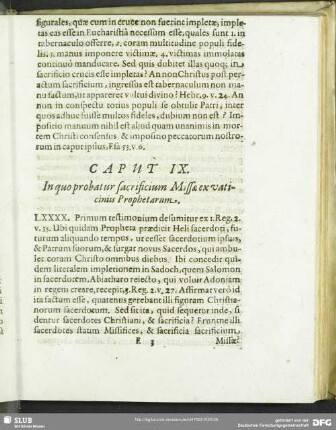 figurales, quæ cum in cruce non fuerint impletæ, imple-
tas eas esse in Eucharistia necessum esse, quales sunt 1. in
tabernaculo offerre, 2. coram multitudine populi fide-
lis, 3. manus imponere victimæ, 4. victimas immolatas
continuò manducare. Sed quis dubitet illas quoq; in
sacrificio crucis esse impletas? An non Christus post per-
actum sacrificium, ingressus est tabernaculum non manu
factum, ut appareret vultui divino? Hebr. 9. v. 24. An
non in conspectu totius populi se obtulit Patri, inter
quos adhuc fuisse multos fideles, dubium non est? Im-
positio manuum nihil est aliud quam unanimis in mor-
tem Christi consensus & impositio peccatorum nostro-
rum in caput ipsius, Esa 53. v. 6.
CAPUT IX.
In quo probatur sacrificium Missæ ex vati-
cinius Prophetarum.
LXXXX. Primum testimonium desumitur ex 1. Reg. 2.
v. 35. Ubi quidam Propheta prædicit Heli sacerdoti, fu-
turum aliquando tempus, ut cesset sacerdotium ipsius,
& Patrum suorum, & surgat novus Sacerdos, qui ambu-
let coram Christo omnibus diebus. Ibi concedit qui-
dem literalem impletionem in Sadoch, quem Salomon
in sacerdotem, Abiatharo reiecto, qui voluit Adoniam
in regem creare, recepit, 3. Reg. 2. v. 27. Affirmat verò id
ita factum esse, quatenus gerebant illi figuram Christia-
norum sacerdotum. Sed sit ita, quid sequetur inde, si
dentur sacerdotes Christiani, & sacrificia? Eruntne illi
sacerdotes statim Missifices, & sacrificia sacrificium
E 3 Missæ?
SLUB
http://digital.slub-dresden.de/
gefördert von der
Deutschen Forschungsgemeinschaft
DFG